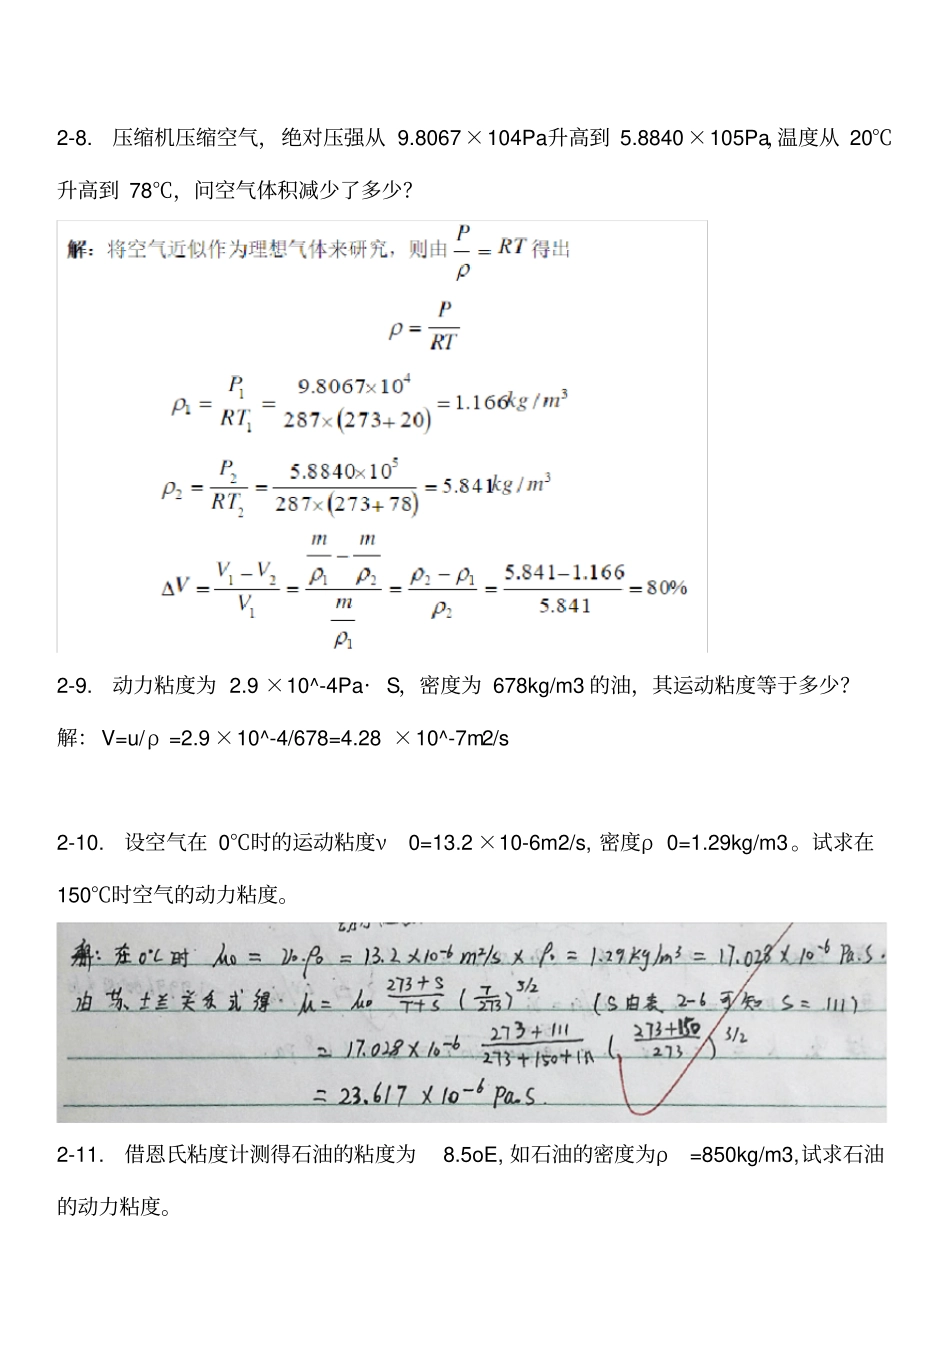 2-8. 压缩机压缩空气，绝对压强从 9.8067×104Pa升高到 5.8840×105Pa,温度从 20℃
升高到 78℃，问空气体积减少了多少？
解：将空气近似作为理想气体来研究，则由 P/ρ = RT 得出
ρ = P/RT
ρ₁ = P₁/RT₁ = 9.8067×10⁴/287×(273+20) = 1.166kg/m³
ρ₂ = P₂/RT₂ = 5.8840×10⁵/287×(273+78) = 5.841kg/m³
ΔV = (V₁－V₂)/V₁ = (m/ρ₁ － m/ρ₂)/(m/ρ₁) = (ρ₂－ρ₁)/ρ₂ = (5.841－1.166)/5.841 = 80%
2-9. 动力粘度为 2.9 ×10^-4Pa·S，密度为 678kg/m3 的油，其运动粘度等于多少？
解：V=u/ρ =2.9×10^-4/678=4.28 ×10^-7m2/s
2-10. 设空气在 0℃时的运动粘度ν 0=13.2×10-6m2/s, 密度ρ 0=1.29kg/m3。试求在
150℃时空气的动力粘度。
解：在0℃时 μ₀ = ν₀·ρ₀ = 13.2×10⁻⁶ m²/s × ρ₀ = 1.29kg/m³ = 17.028×10⁻⁶ Pa.s.
由苏士兰关系式得. μ = μ₀ (273+S)/(T+S) (T/273)^3/2 (S由表2-6可知 S=111)
= 17.028×10⁻⁶ (273+111)/(273+150+111) ((273+150)/273)^3/2
= 23.617×10⁻⁶ Pa.s.
2-11. 借恩氏粘度计测得石油的粘度为 8.5oE, 如石油的密度为ρ =850kg/m3,试求石油
的动力粘度。